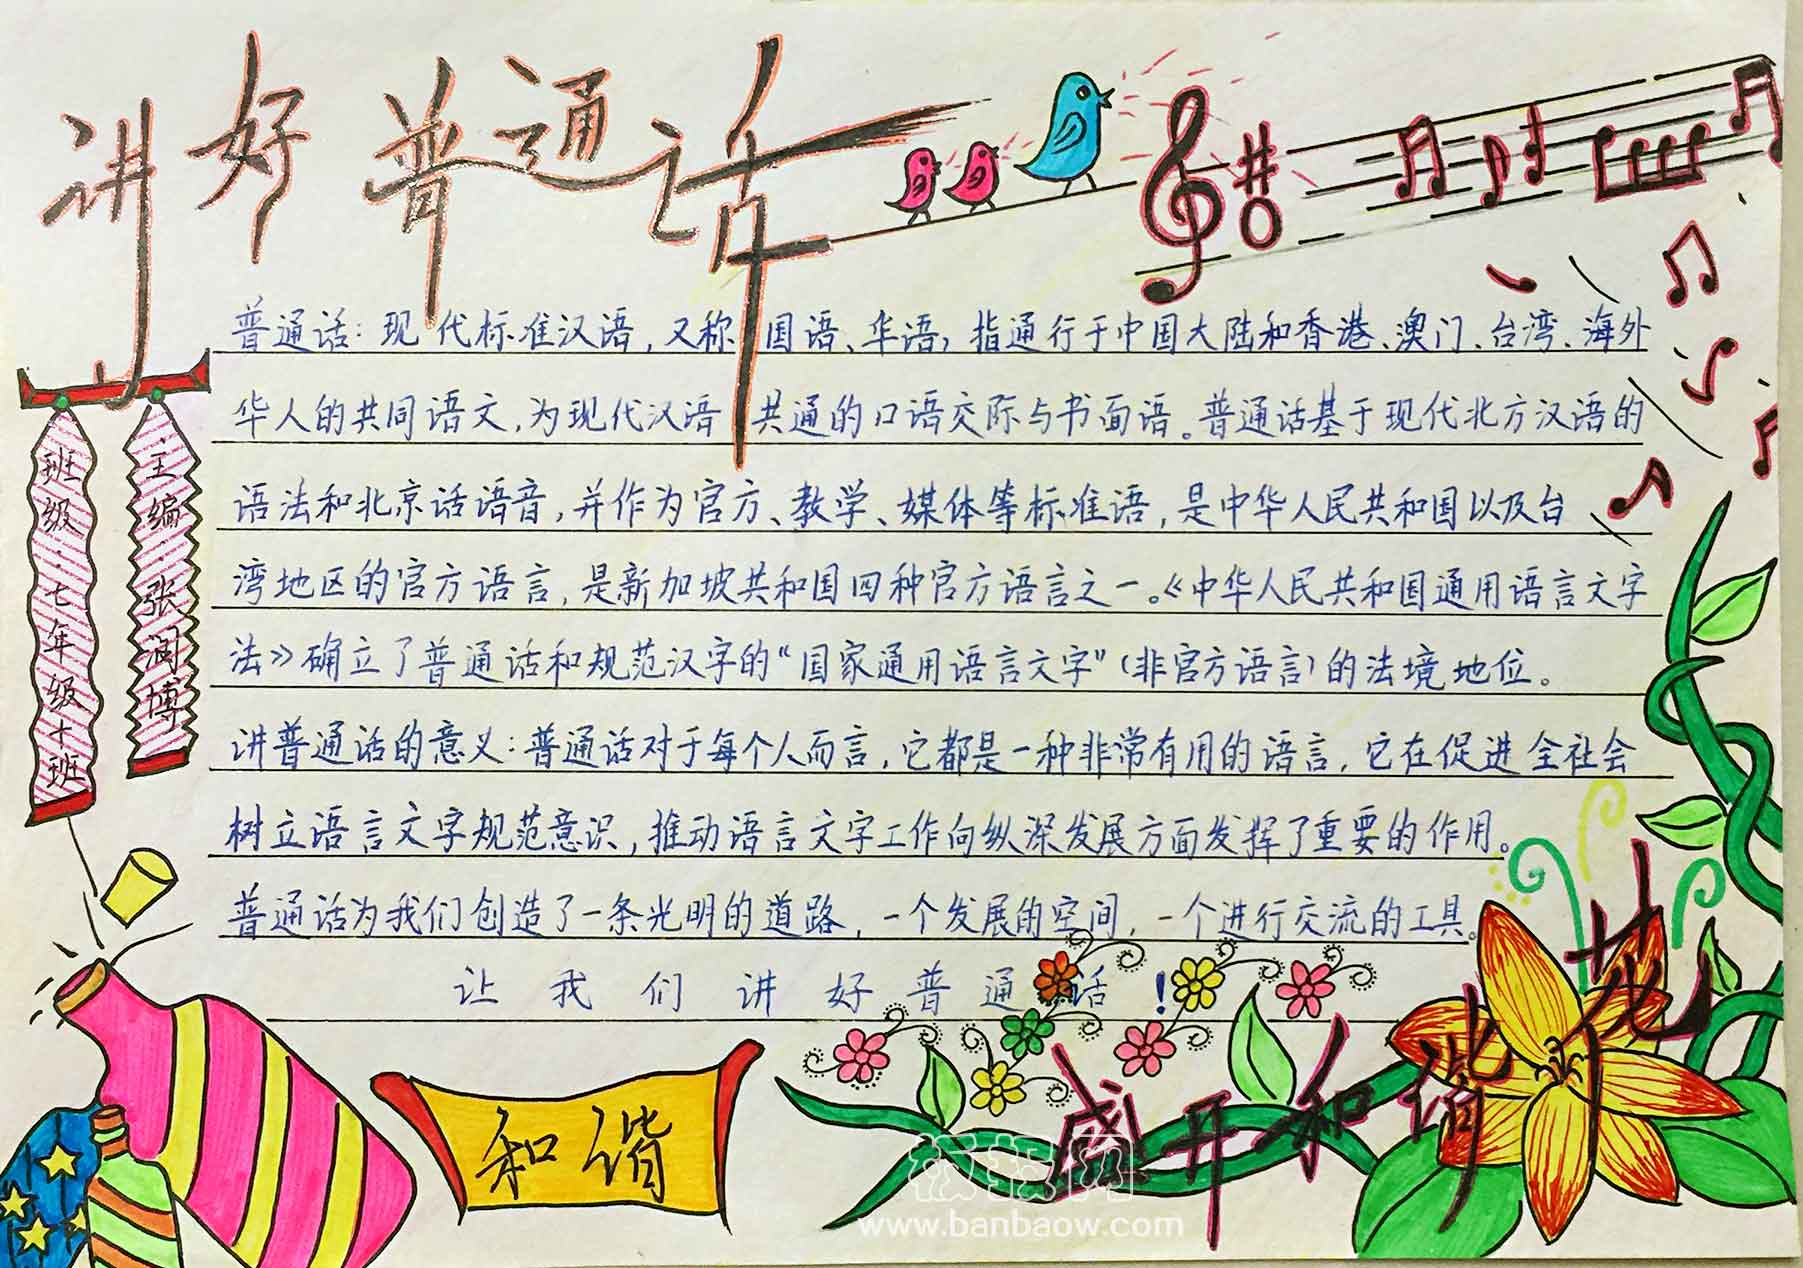 讲好普通话
普通话：现代标准汉语，又称国语、华语，指通行于中国大陆和香港、澳门、台湾、海外
华人的共同语文，为现代汉语共通的口语交际与书面语。普通话基于现代北方汉语的
语法和北京话语音，并作为官方、教学、媒体等标准语，是中华人民共和国以及台
湾地区的官方语言，是新加坡共和国四种官方语言之一。《中华人民共和国通用语言文字
法》确立了普通话和规范汉字的“国家通用语言文字”（非官方语言）的法境地位。
讲普通话的意义：普通话对于每个人而言，它都是一种非常有用的语言，它在促进全社会
树立语言文字规范意识，推动语言文字工作向纵深发展方面发挥了重要的作用。
普通话为我们创造了一条光明的道路，一个发展的空间，一个进行交流的工具。
让我们讲好普通话！
班级：七年级十班
主编：张润博
和谐
盛开和谐花
板报网
www.banbaow.com